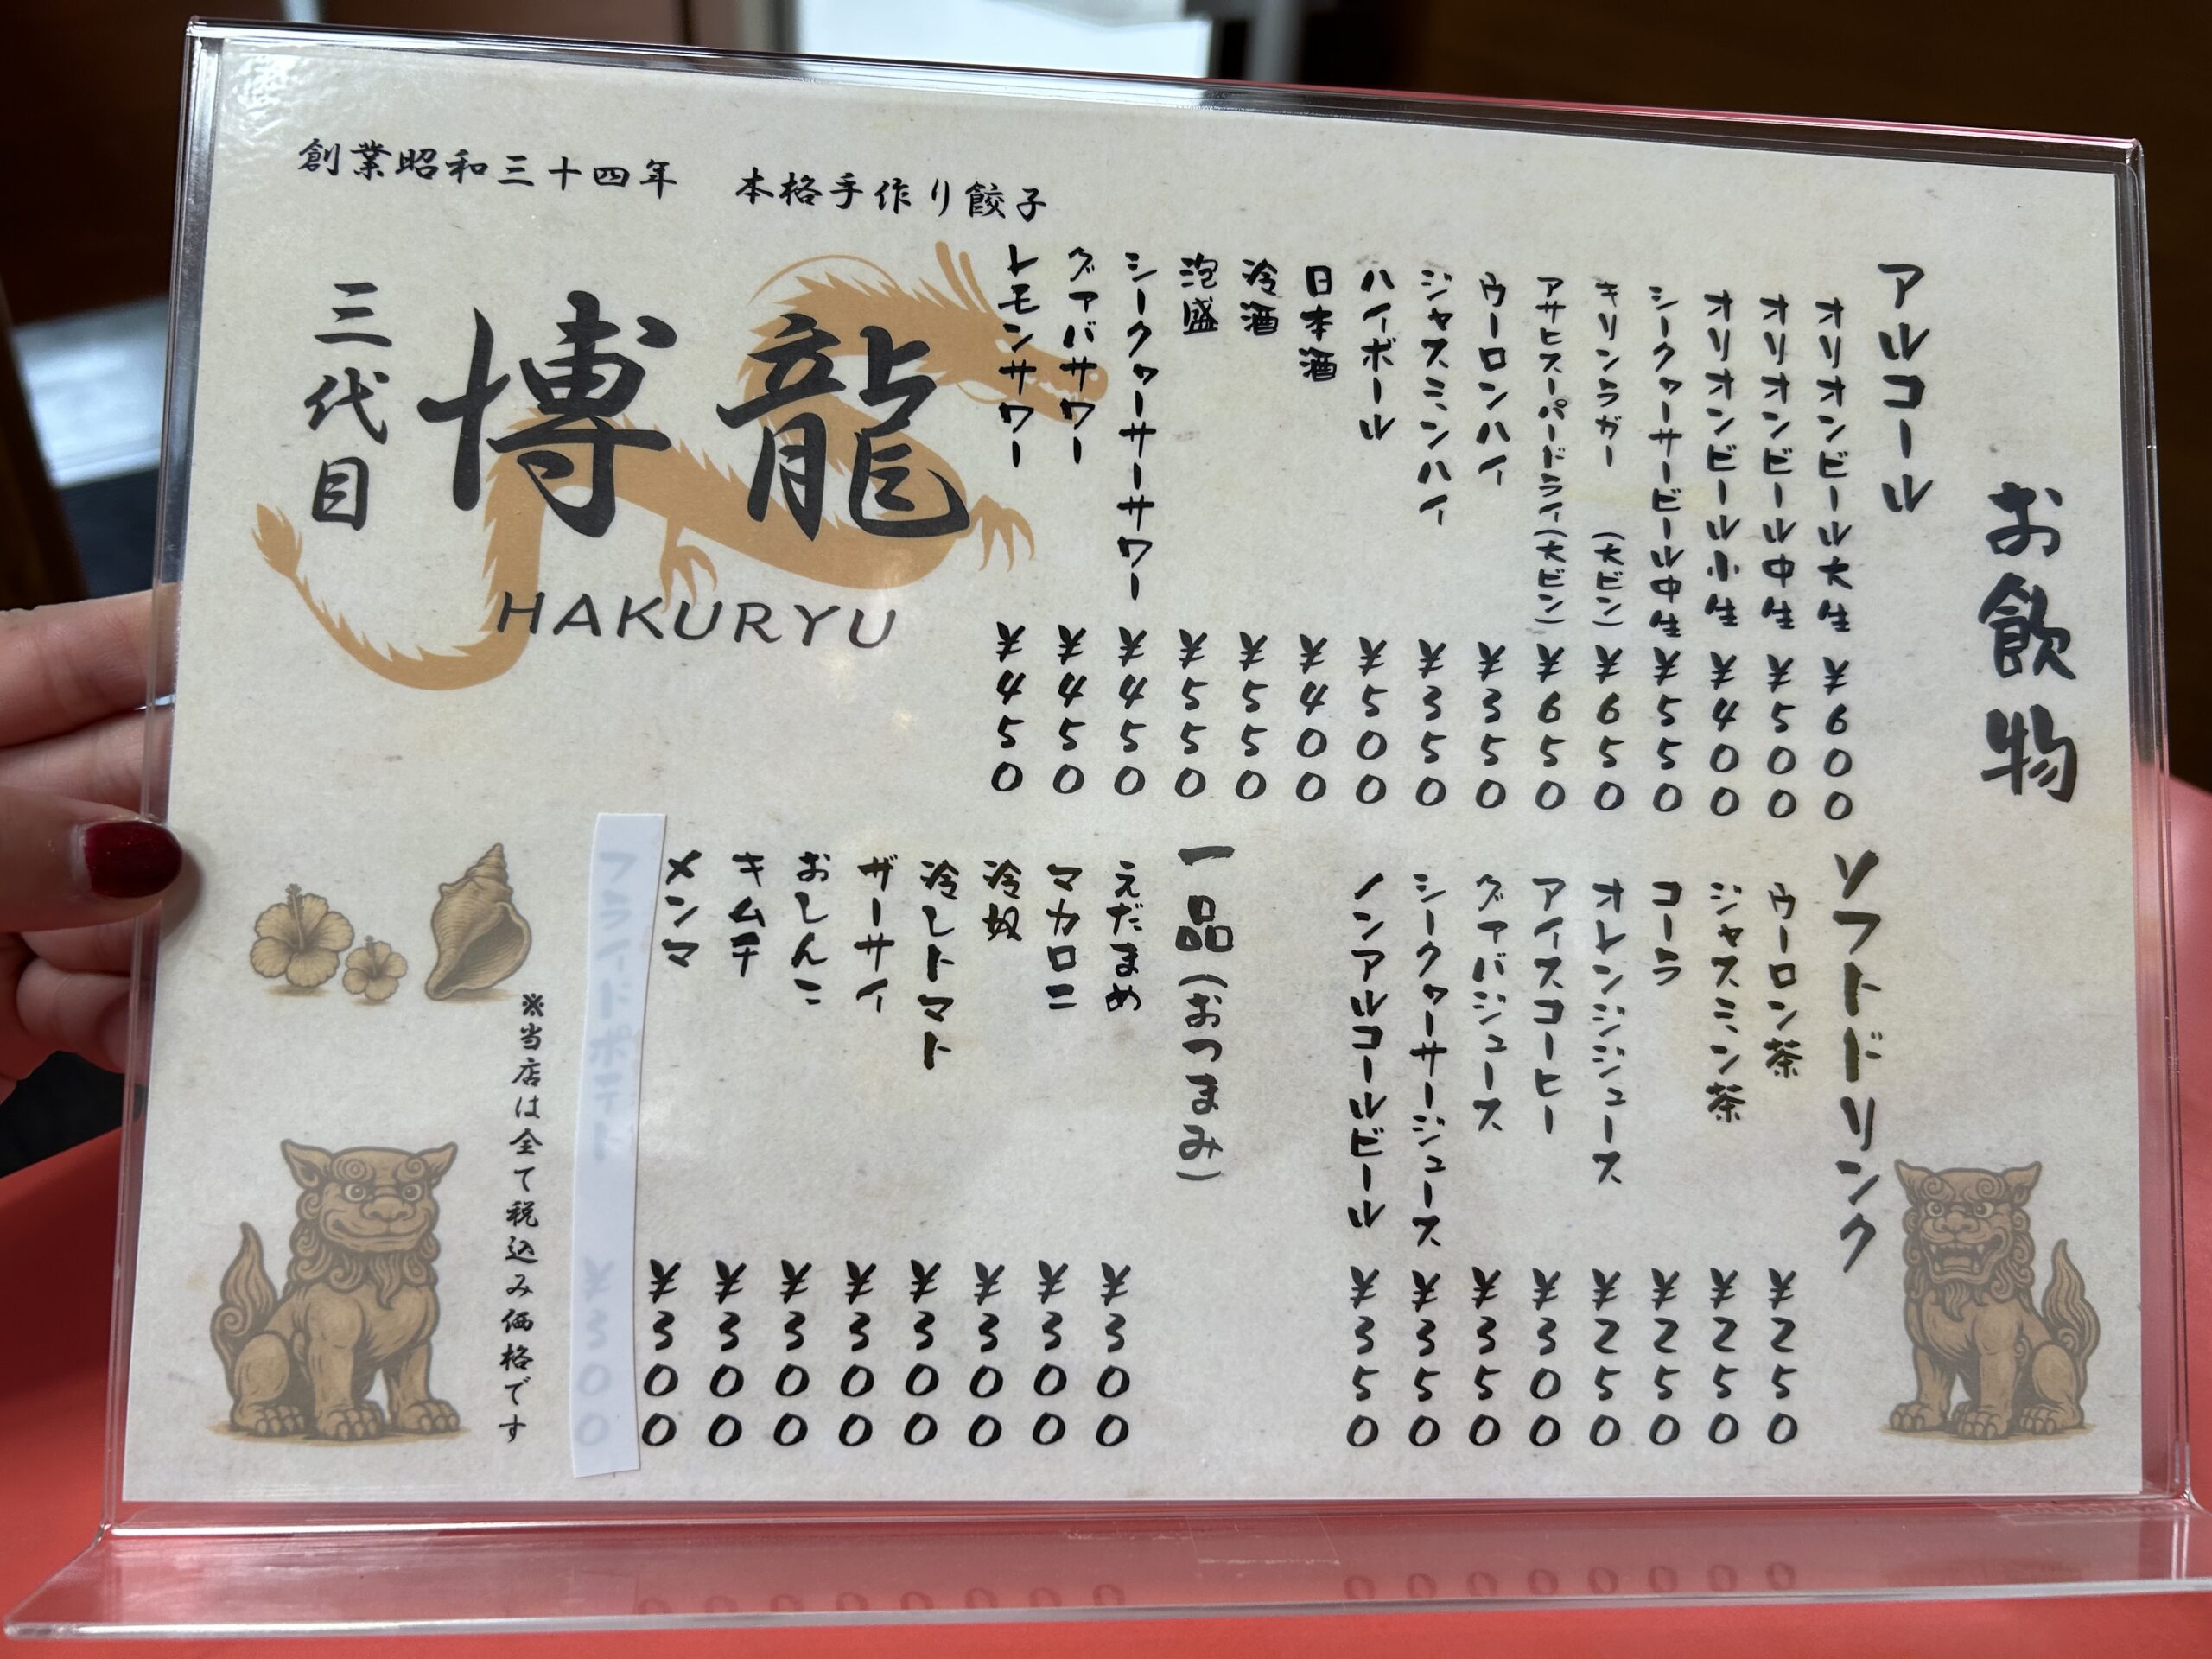 お飲物
アルコール
オリオンビール大生 ¥600
オリオンビール中生 ¥500
オリオンビール小生 ¥400
シークヮーサービール中生 ¥550
キリンラガー (大ビン) ¥650
アサヒスーパードライ(大ビン) ¥650
ウーロンハイ ¥350
ジャスミンハイ ¥350
ハイボール ¥500
日本酒 ¥400
冷酒 ¥550
泡盛 ¥550
シークヮーサーサワー ¥450
グァバサワー ¥450
トモンサワー ¥450
ソフトドリンク
ウーロン茶 ¥250
ジャスミン茶 ¥250
コーラ ¥250
オレンジジュース ¥250
アイスコーヒー ¥300
グァバジュース ¥350
シークヮーサージュース ¥350
ノンアルコールビール ¥350
一品(おつまみ)
えだまめ ¥300
マカロニ ¥300
冷奴 ¥300
冷しトマト ¥300
ザーサイ ¥300
おしんこ ¥300
キムチ ¥300
メンマ ¥300
フライドポテト ¥300
※当店は全て税込み価格です
創業昭和三十四年 本格手作り餃子
三代目
博龍
HAKURYU